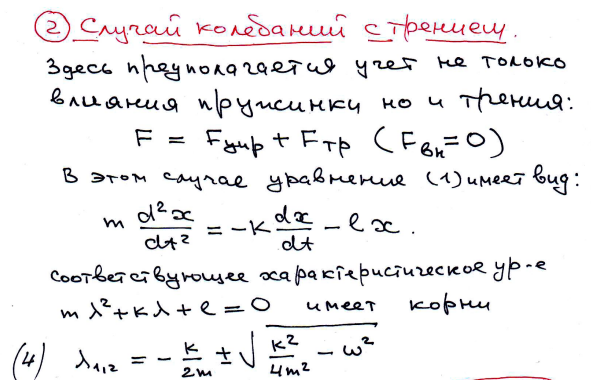 ② Случай колебаний с трением.
Здесь преуполагается учет не только
влияния пружинки но и трения:
F = Fупр + Fтр (Fвн = 0)
В этом случае уравнение (1) имеет вид:
m d²x/dt² = -k dx/dt - ℓx.
соответствующее характеристическое ур-е
mλ² + kλ + ℓ = 0 имеет корни
(4) λ₁,₂ = - k/2m ± √(k²/4m² - ω²)